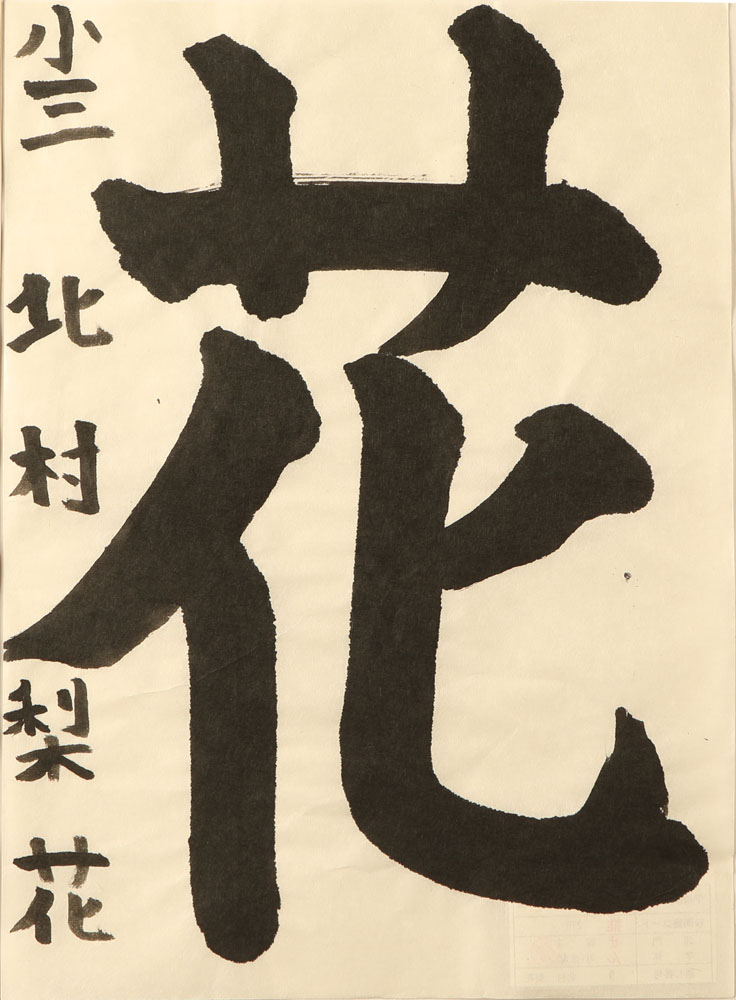 花
小三 北村梨花